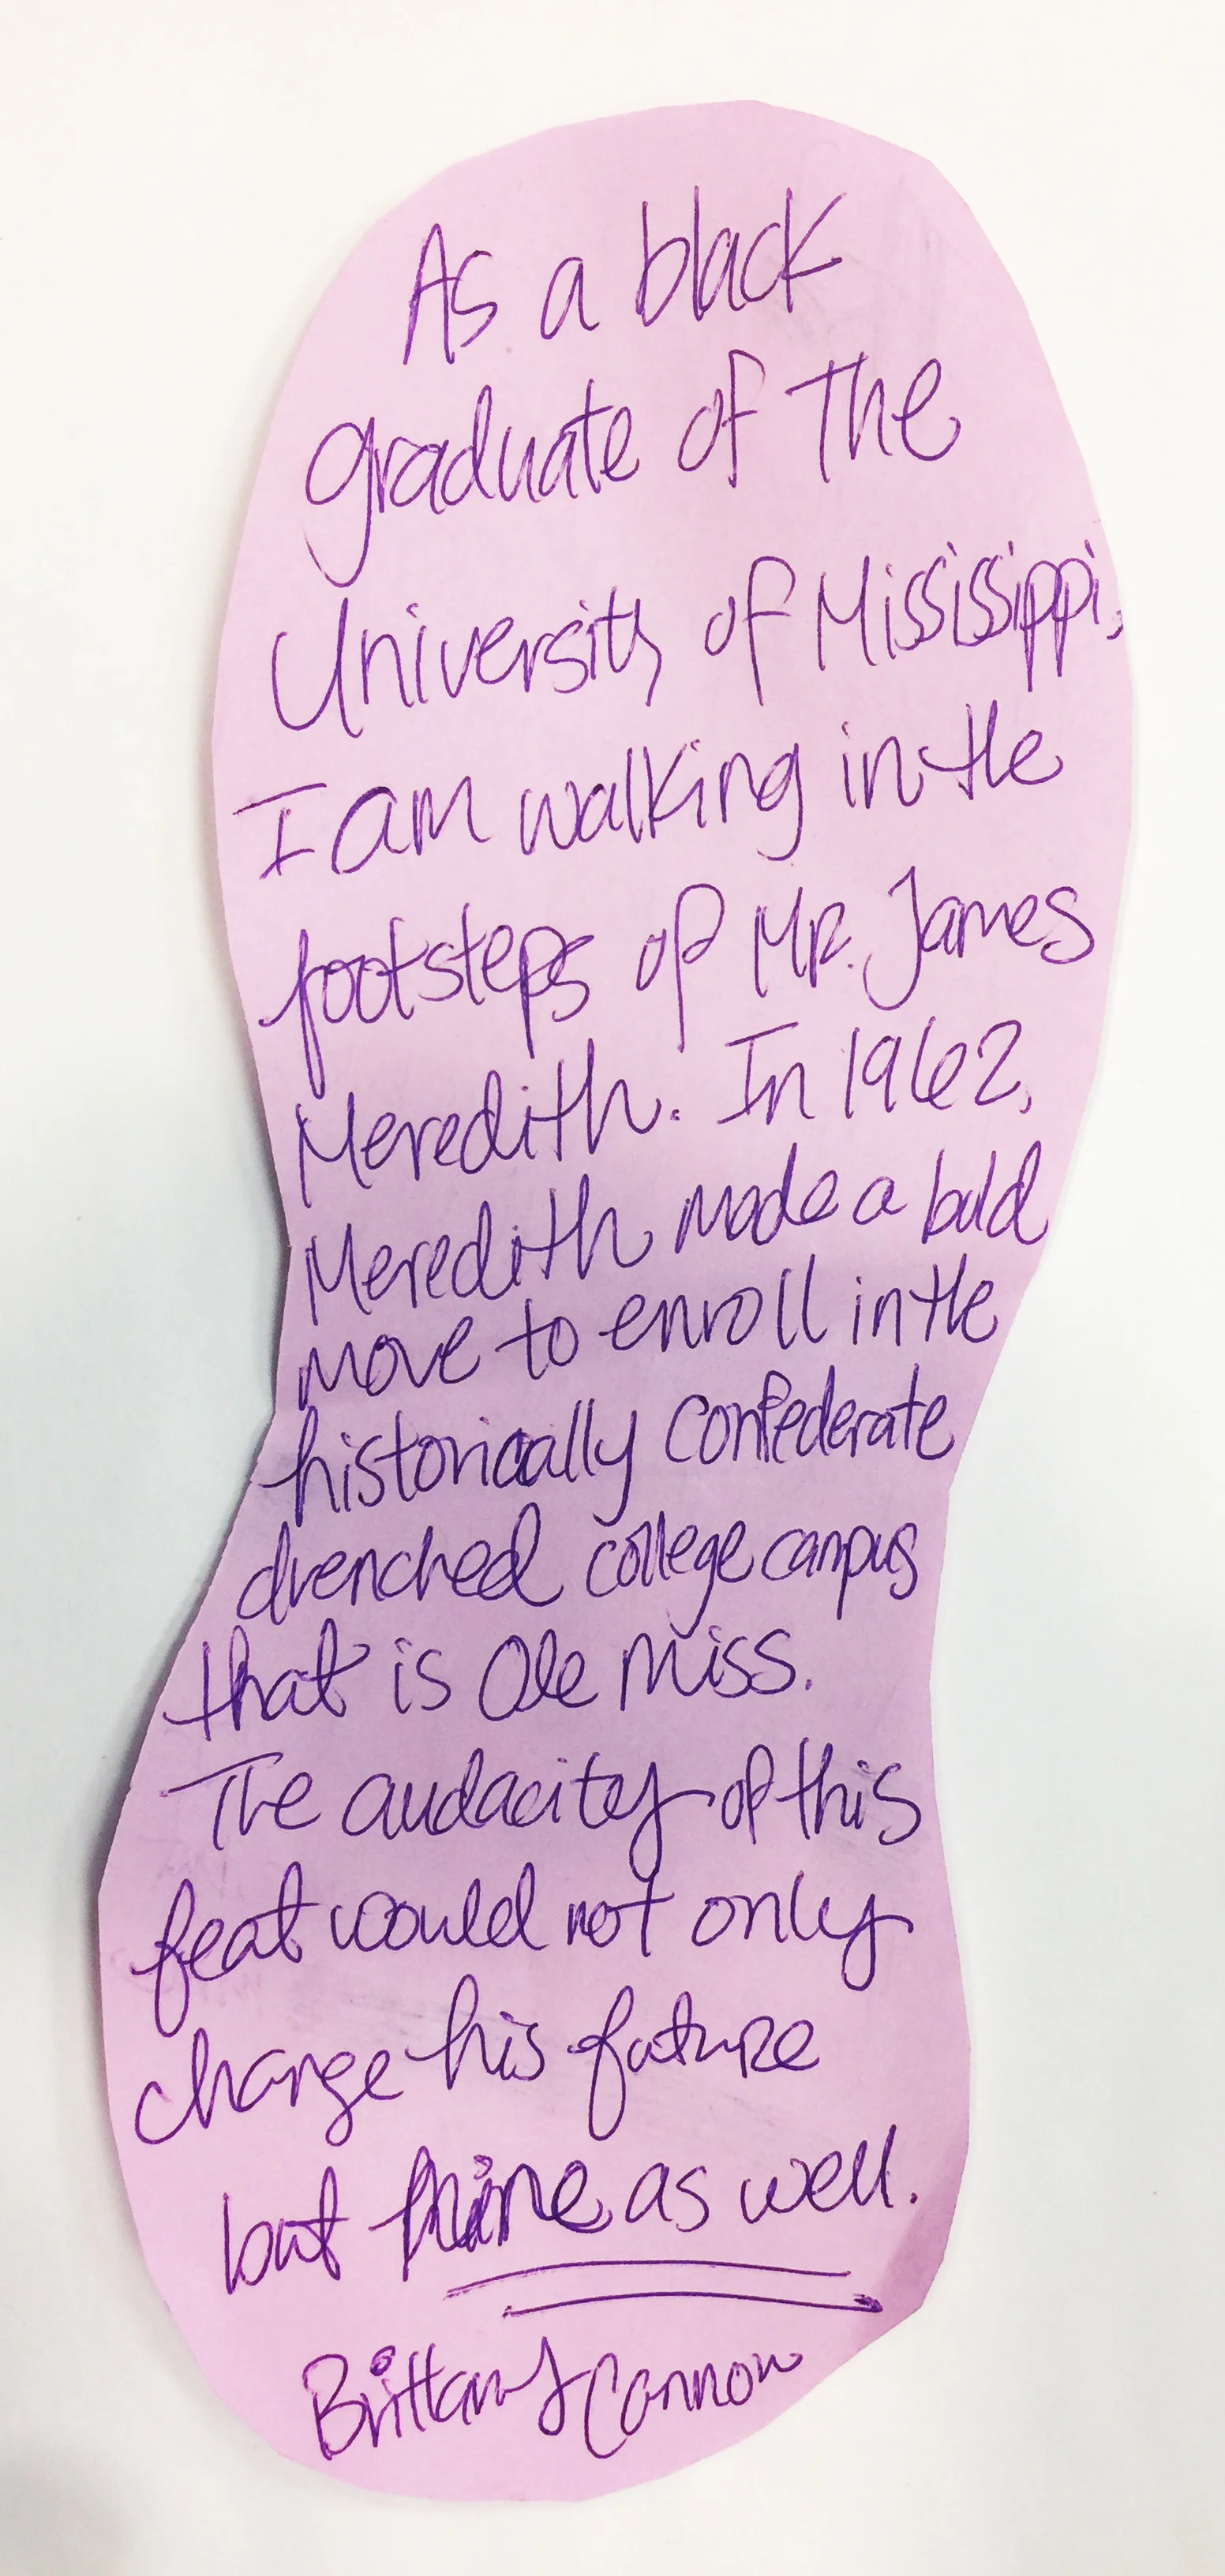 As a black
graduate of The
University of Mississippi,
I am walking in the
footsteps of Mr. James
Meredith. In 1962,
Meredith made a bold
move to enroll in the
historically Confederate
drenched college campus
that is Ole Miss.
The audacity of this
feat would not only
change his future
but mine as well.
Brittany Cannon